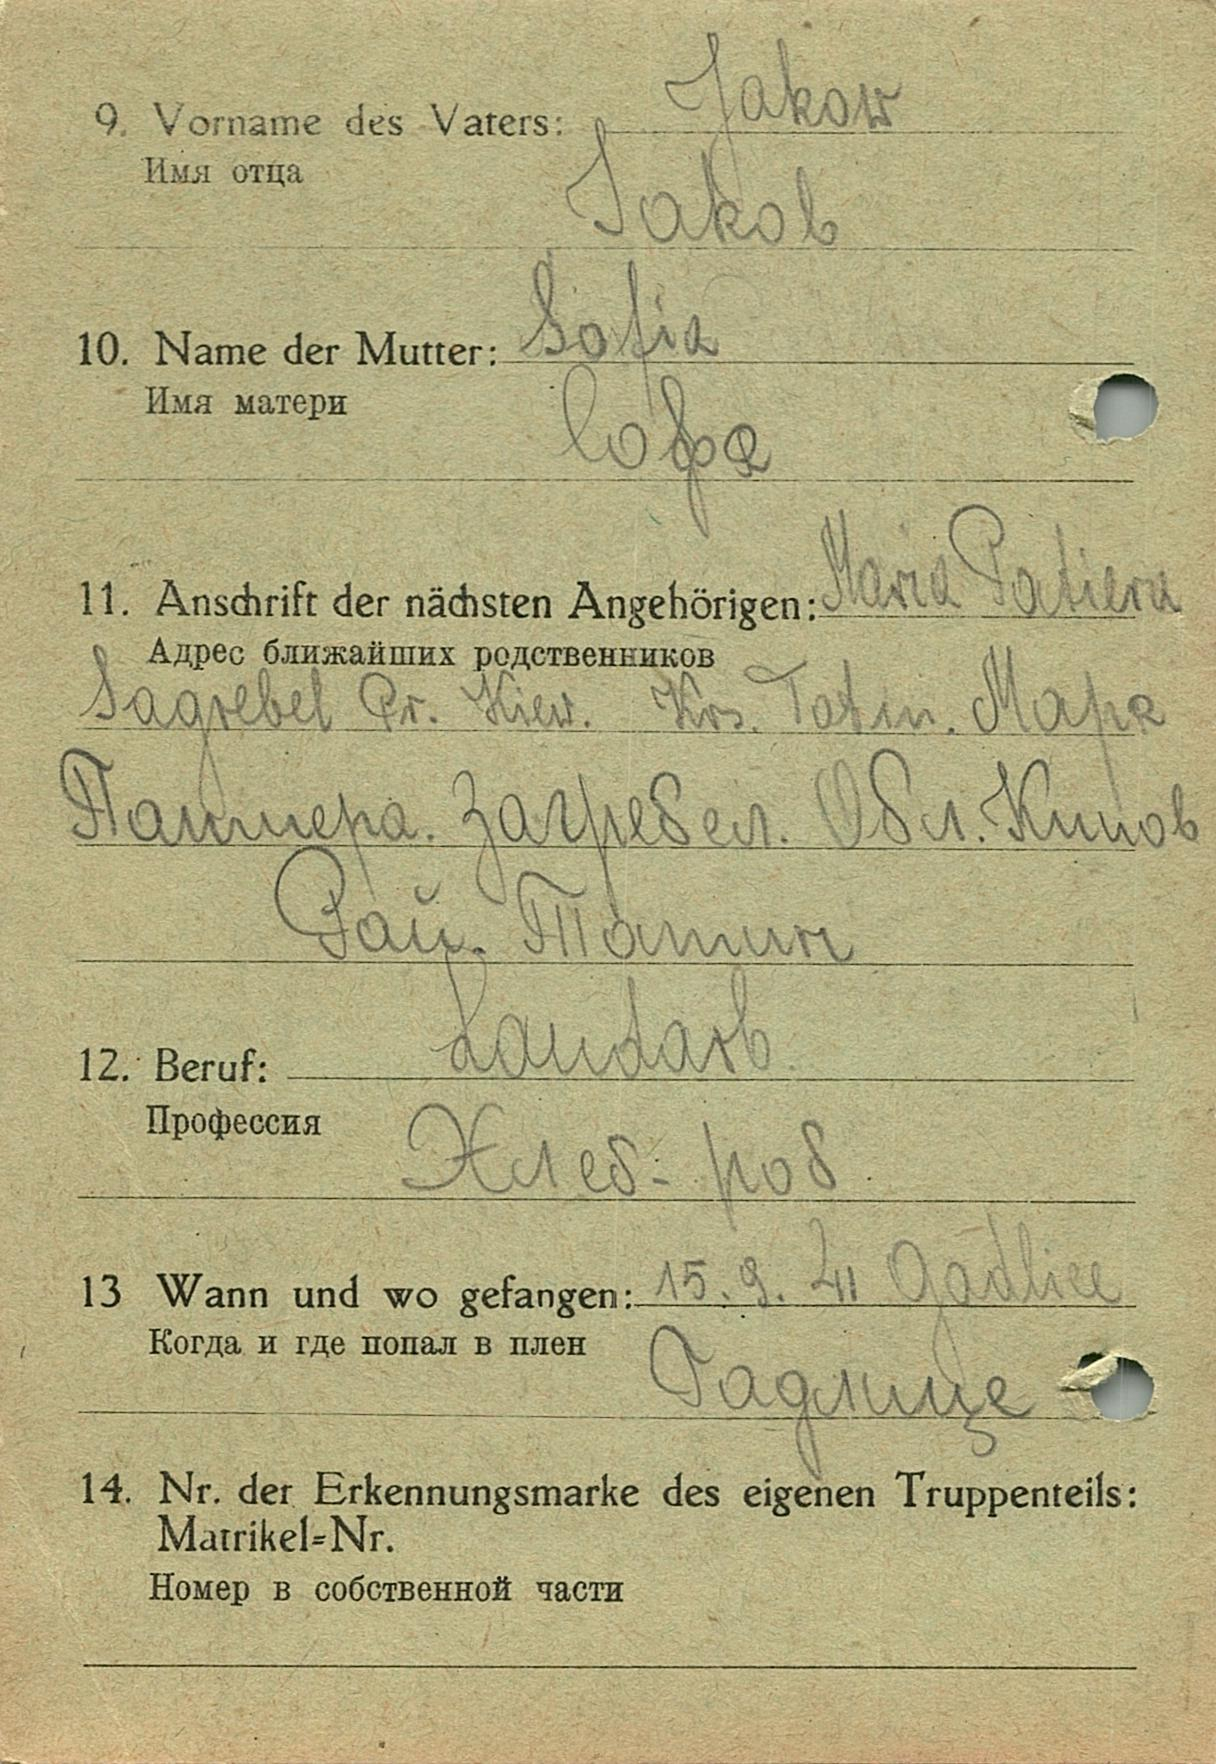 9. Vorname des Vaters: Jakow
Имя отца
Jаков
10. Name der Mutter: Sofia
Имя матери
Софя
11. Anschrift der nächsten Angehörigen: Maria Patiera
Адрес ближайших родственников
Sagrebel Gr. Kiew. Krs. Tatin. Маря
Патиера. Загребел. Обл. Киов
Рай. Татин
12. Beruf: Landarb.
Профессия
Хлеб-роб
13 Wann und wo gefangen: 15.9.41 Gadlice
Когда и где попал в плен
Гадлице
14. Nr. der Erkennungsmarke des eigenen Truppenteils:
Matrikel=Nr.
Номер в собственной части